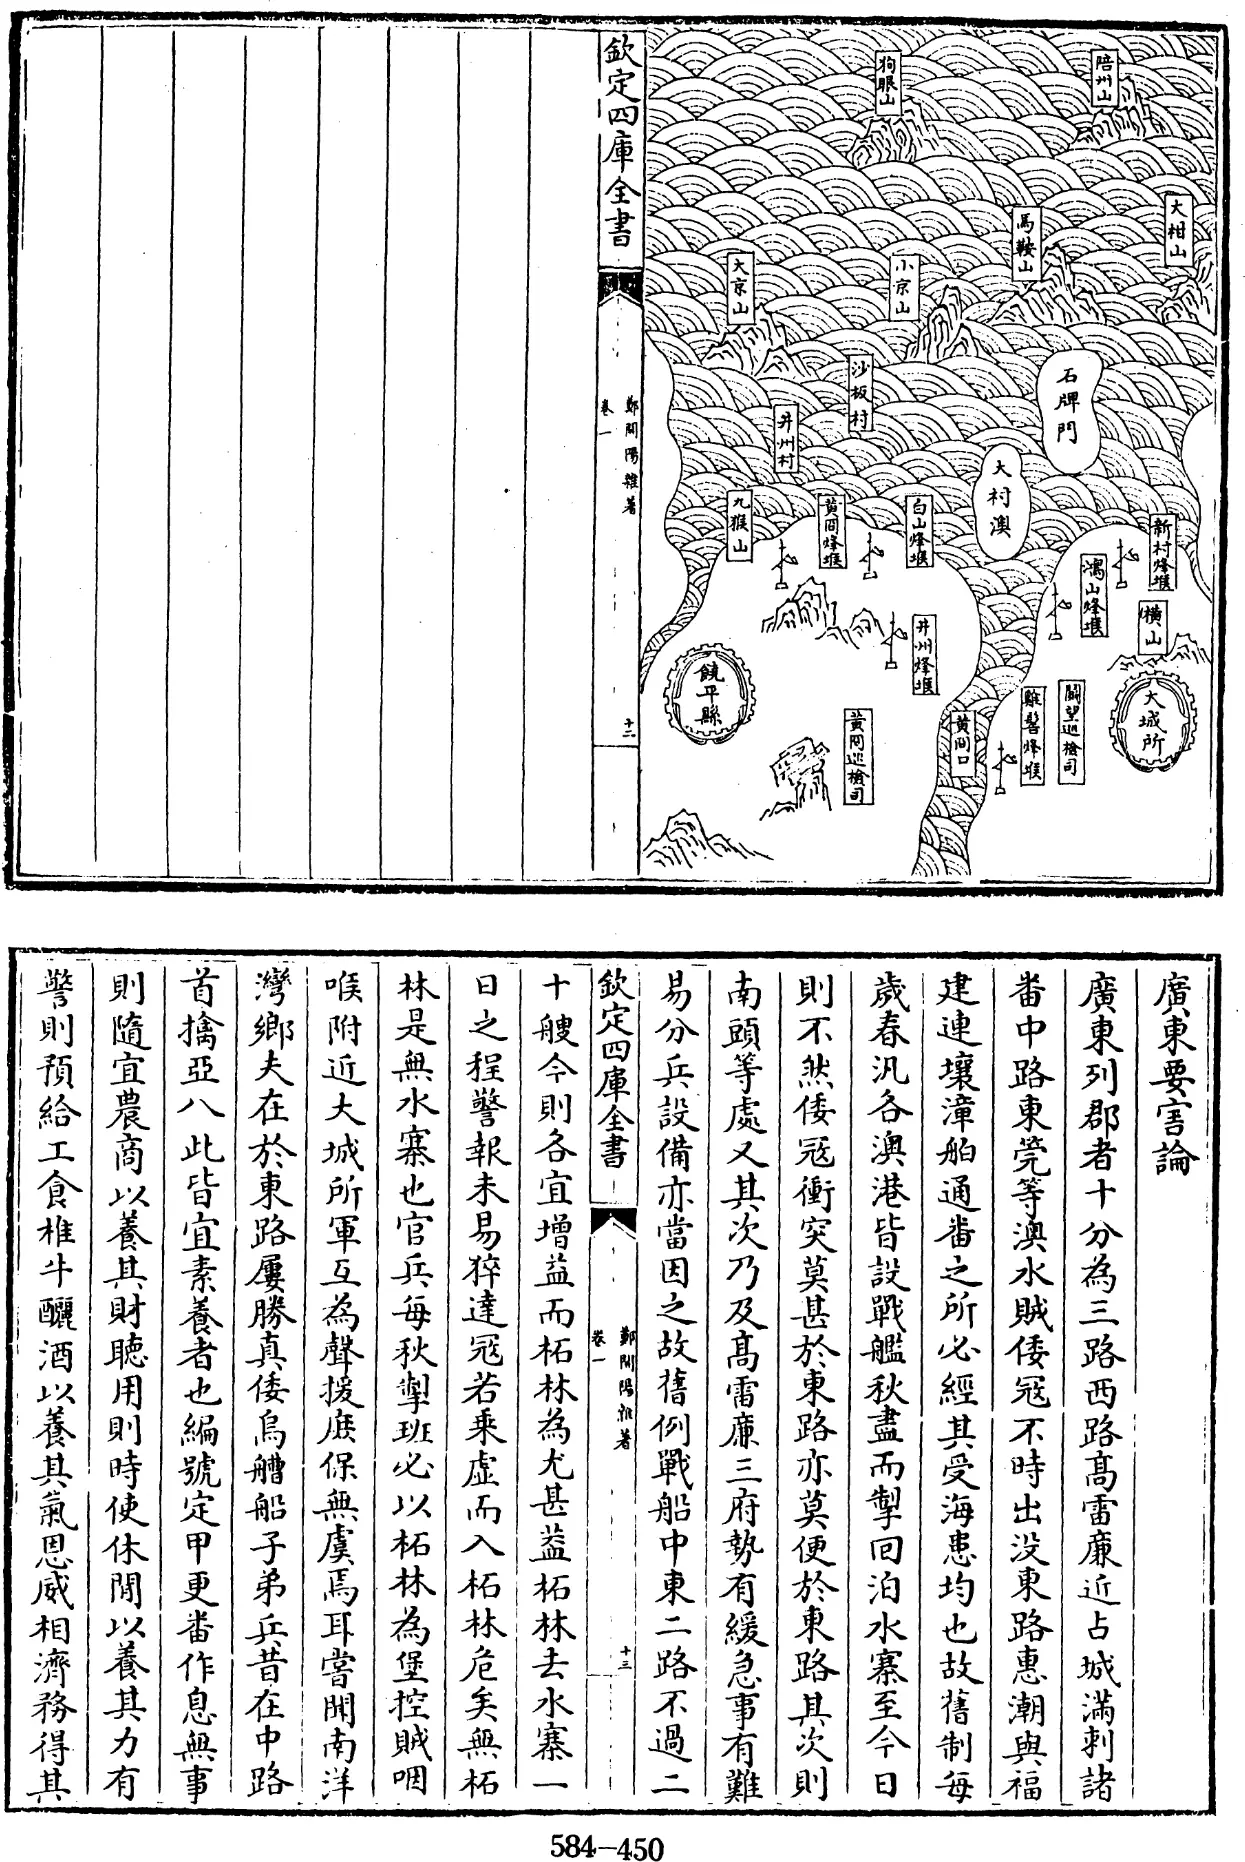 陪州山
狗眼山
大柑山
馬鞍山
小京山
大京山
石牌門
沙板村
井州村
大村澳
新村烽堠
鴻山烽堠
白山烽堠
黄岡烽堠
九猴山
横山
井州烽堠
大城所
闢望巡檢司
雞髻烽堠
黄岡口
黄岡巡檢司
饒平縣
欽定四庫全書
鄭開陽雜著
卷一
十二
廣東要害論
廣東列郡者十分為三路西路髙雷廉近占城滿剌諸
番中路東莞等澳水賊倭冦不時出没東路惠潮與福
建連壤漳舶通番之所必經其受海患均也故舊制每
歲春汛各澳港皆設戰艦秋盡而掣回泊水寨至今日
則不然倭冦衝突莫甚於東路亦莫便於東路其次則
南頭等處又其次乃及髙雷廉三府勢有緩急事有難
易分兵設備亦當因之故舊例戰船中東二路不過二
欽定四庫全書
鄭開陽雜著
卷一
十三
十艘今則各宜增益而柘林為尤甚葢柘林去水寨一
日之程警報未易猝達冦若乘虛而入柘林危矣無柘
林是無水寨也官兵每秋掣班必以柘林為堡控賊咽
喉附近大城所軍互為聲援庶保無虞焉耳嘗聞南洋
灣鄉夫在於東路屢勝真倭烏艚船子弟兵昔在中路
首擒亞八此皆宜素養者也編號定甲更番作息無事
則隨宜農商以養其財聽用則時使休閒以養其力有
警則預給工食椎牛釃酒以養其氣恩威相濟務得其
584-450